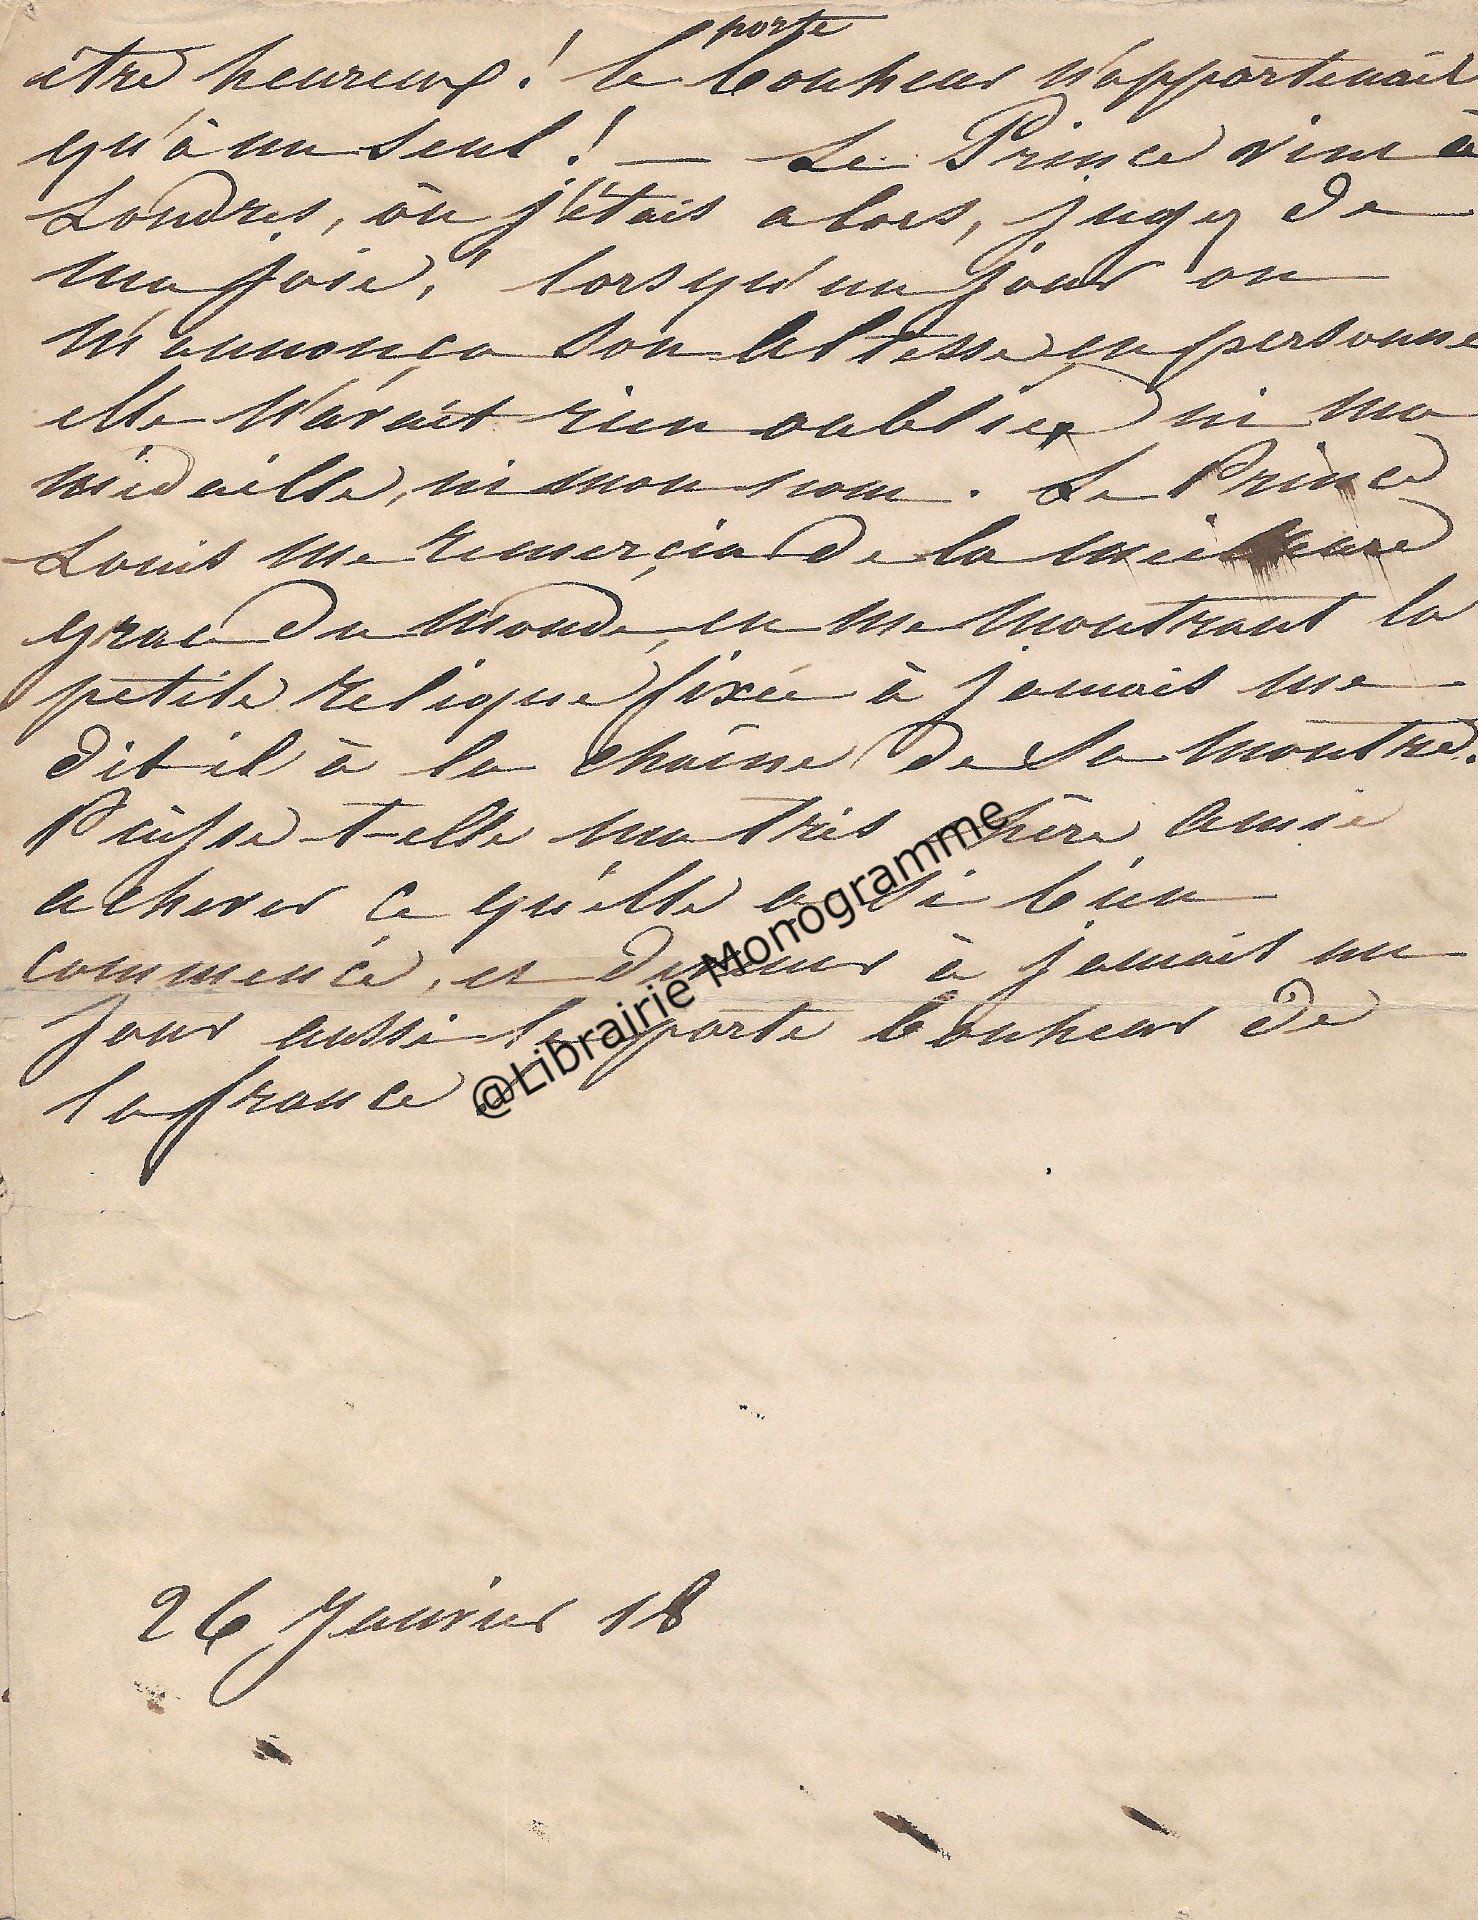 porte
être heureux ! le bonheur n'appartenait
qu'à un seul ! — Le Prince vint à
Londres, où j'étais alors, jugez de
ma joie, lorsqu'un jour on
m'annonça son Altesse en personne
elle n'avait rien oublié, ni ma
médaille, ni mon nom. Le Prince
Louis me remercia de la meilleure
grace du monde, en me montrant la
petite relique fixée à jamais me
dit il à la chaîne de sa montre.
Puisse t-elle ma très chère amie
achever ce qu'elle a si bien
commencé, et devenir à jamais un
jour aussi le porte bonheur de
la france
@Librairie Monogramme
26 Janvier 18